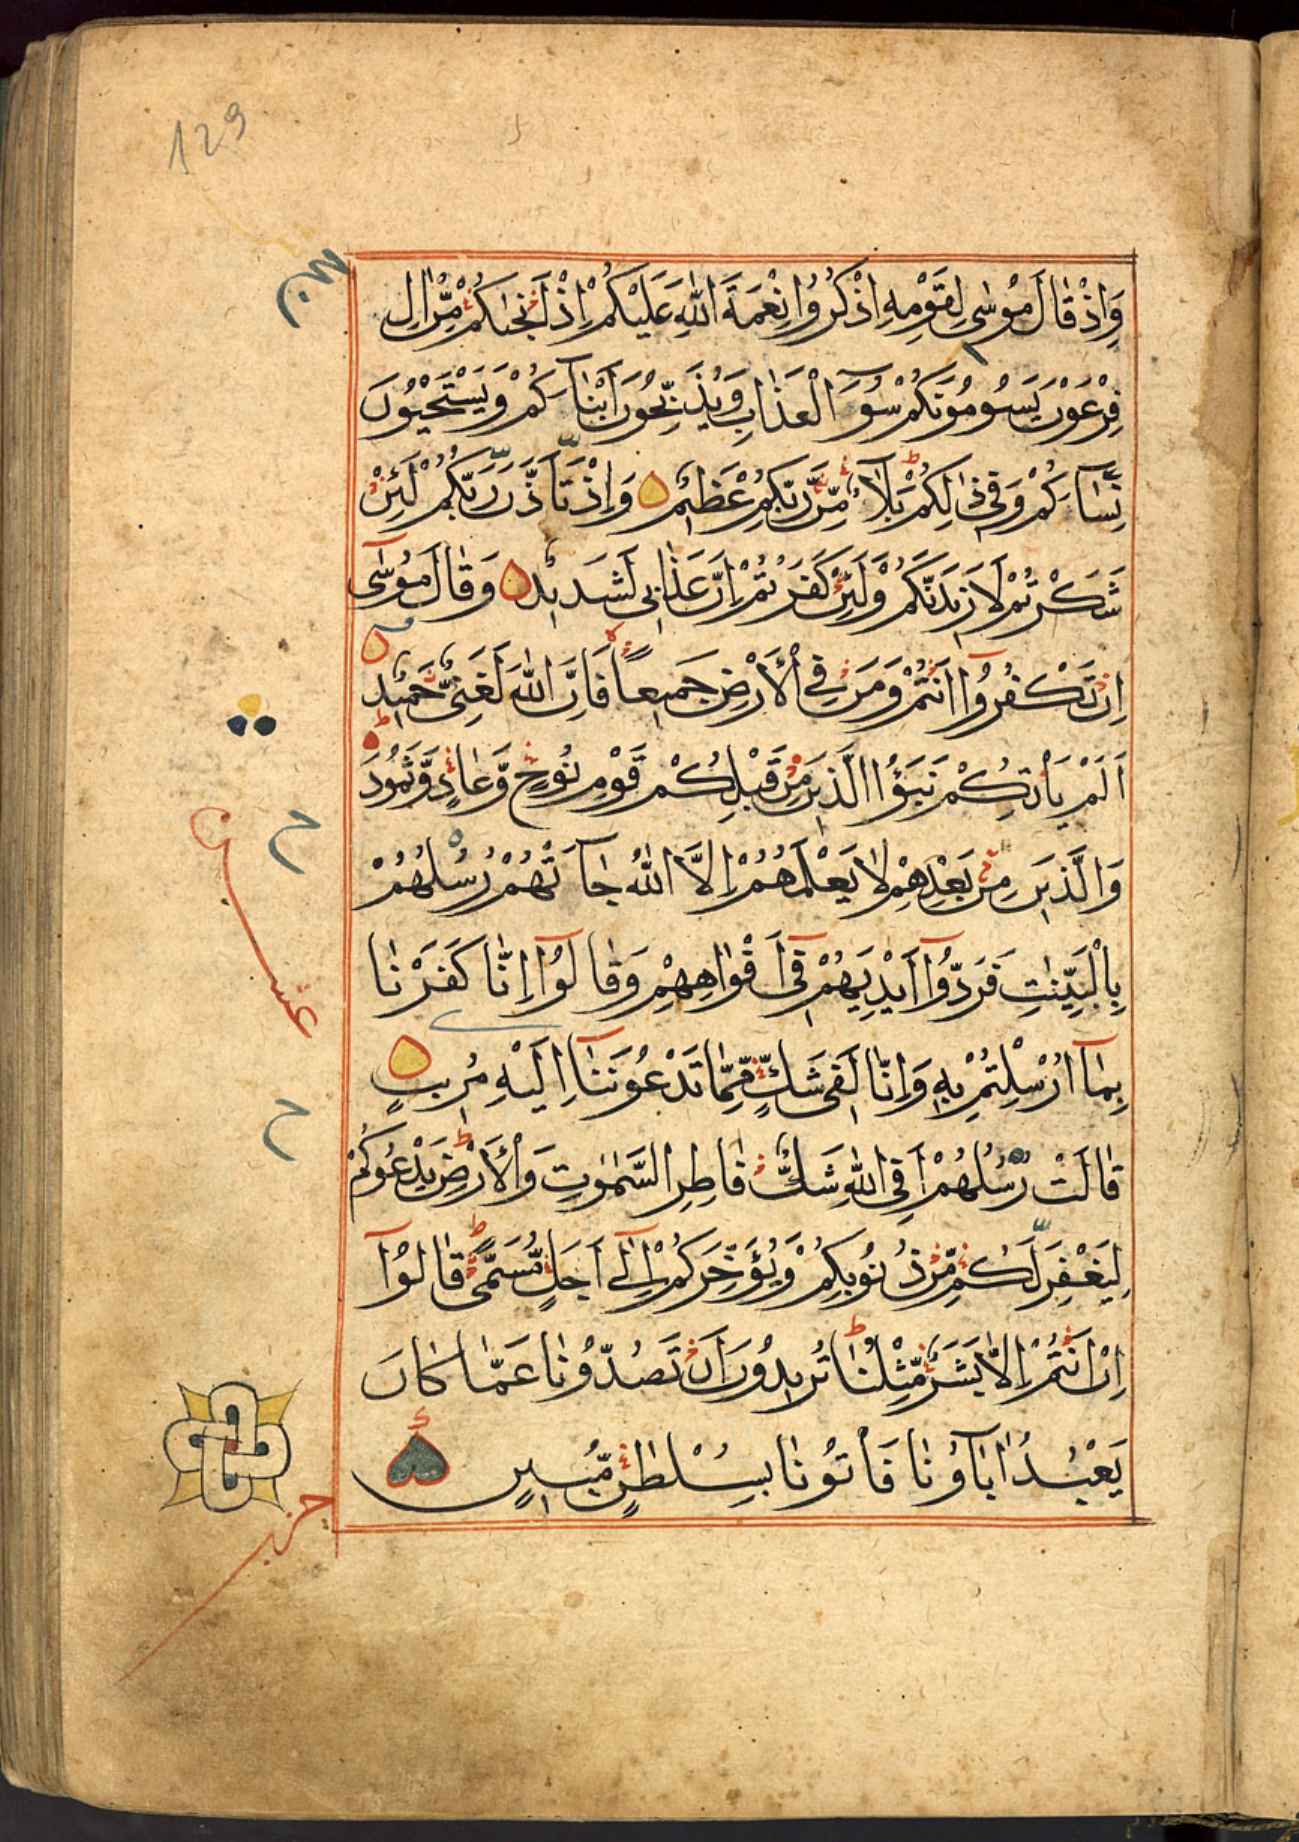 129
وَاِذْ قَالَ مُوْسٰى لِقَوْمِهِ اذْكُرُوا نِعْمَةَ اللّٰهِ عَلَيْكُمْ اِذْ اَنْجٰىكُمْ مِّنْ اٰلِ
فِرْعَوْنَ يَسُوْمُوْنَكُمْ سُوْٓءَ الْعَذَابِ وَيُذَبِّحُوْنَ اَبْنَآءَكُمْ وَيَسْتَحْيُوْنَ
نِسَآءَكُمْ وَفِيْ ذٰلِكُمْ بَلَآءٌ مِّنْ رَّبِّكُمْ عَظِيْمٌ وَاِذْ تَاَذَّنَ رَبُّكُمْ لَئِنْ
شَكَرْتُمْ لَاَزِيْدَنَّكُمْ وَلَئِنْ كَفَرْتُمْ اِنَّ عَذَابِيْ لَشَدِيْدٌ وَقَالَ مُوْسٰٓى
اِنْ تَكْفُرُوْٓا اَنْتُمْ وَمَنْ فِي الْاَرْضِ جَمِيْعًا فَاِنَّ اللّٰهَ لَغَنِيٌّ حَمِيْدٌ
اَلَمْ يَاْتِكُمْ نَبَؤُا الَّذِيْنَ مِنْ قَبْلِكُمْ قَوْمِ نُوْحٍ وَّعَادٍ وَّثَمُوْدَ
وَالَّذِيْنَ مِنْ بَعْدِهِمْ لَا يَعْلَمُهُمْ اِلَّا اللّٰهُ جَآءَتْهُمْ رُسُلُهُمْ
بِالْبَيِّنٰتِ فَرَدُّوْٓا اَيْدِيَهُمْ فِيْٓ اَفْوَاهِهِمْ وَقَالُوْٓا اِنَّا كَفَرْنَا
عشر
بِمَآ اُرْسِلْتُمْ بِهٖ وَاِنَّا لَفِيْ شَكٍّ مِّمَّا تَدْعُوْنَنَآ اِلَيْهِ مُرِيْبٍ
قَالَتْ رُسُلُهُمْ اَفِي اللّٰهِ شَكٌّ فَاطِرِ السَّمٰوٰتِ وَالْاَرْضِ يَدْعُوْكُمْ
لِيَغْفِرَ لَكُمْ مِّنْ ذُنُوْبِكُمْ وَيُؤَخِّرَكُمْ اِلٰٓى اَجَلٍ مُّسَمًّى قَالُوْٓا
اِنْ اَنْتُمْ اِلَّا بَشَرٌ مِّثْلُنَا تُرِيْدُوْنَ اَنْ تَصُدُّوْنَا عَمَّا كَانَ
يَعْبُدُ اٰبَآؤُنَا فَاْتُوْنَا بِسُلْطٰنٍ مُّبِيْنٍ
حزب